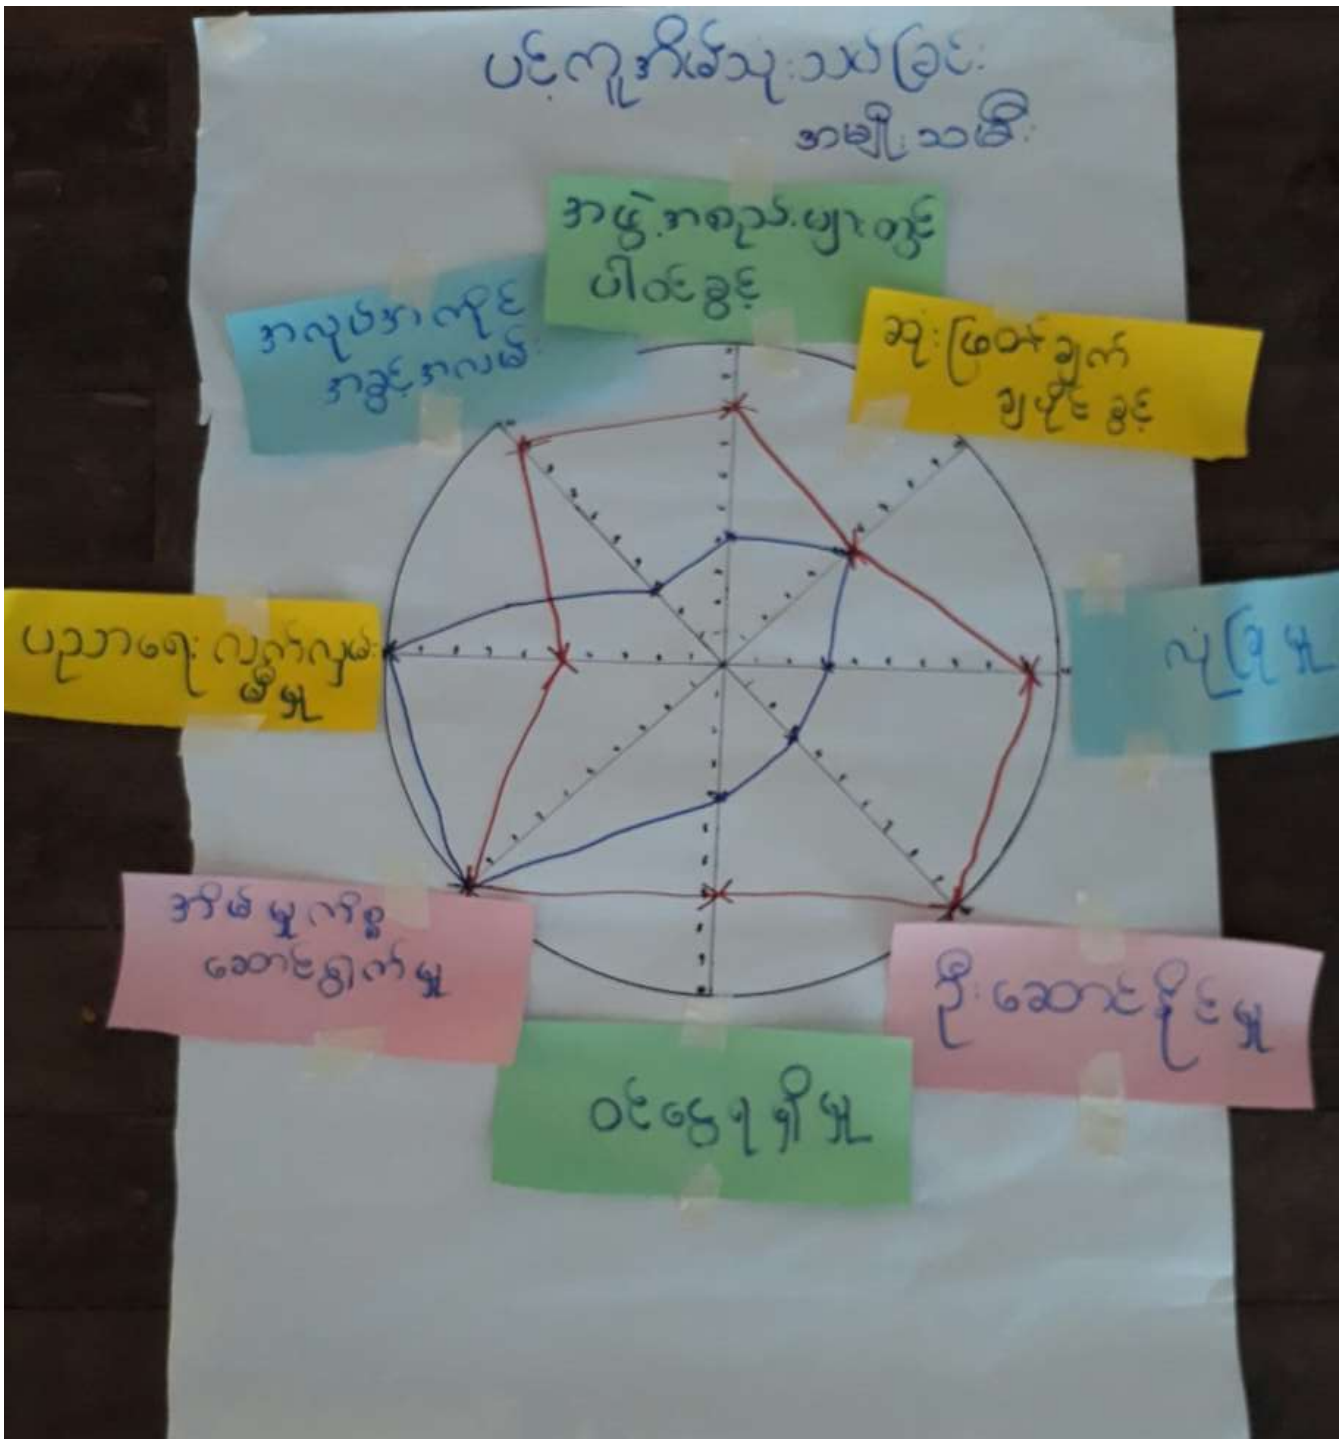 ပင့်ကူအိမ်သုံးသပ်ခြင်း
အမျိုးသမီး
အဖွဲ့အစည်းများတွင်
ပါဝင်ခွင့်
အလုပ်အကိုင်
အခွင့်အလမ်း
ဆုံးဖြတ်ချက်
ချပိုင်ခွင့်
ပညာရေးလက်လှမ်း
မီမှု
လုံခြုံမှု
အိမ်မှုကိစ္စ
ဆောင်ရွက်မှု
ဦးဆောင်နိုင်မှု
ဝင်ငွေရရှိမှု